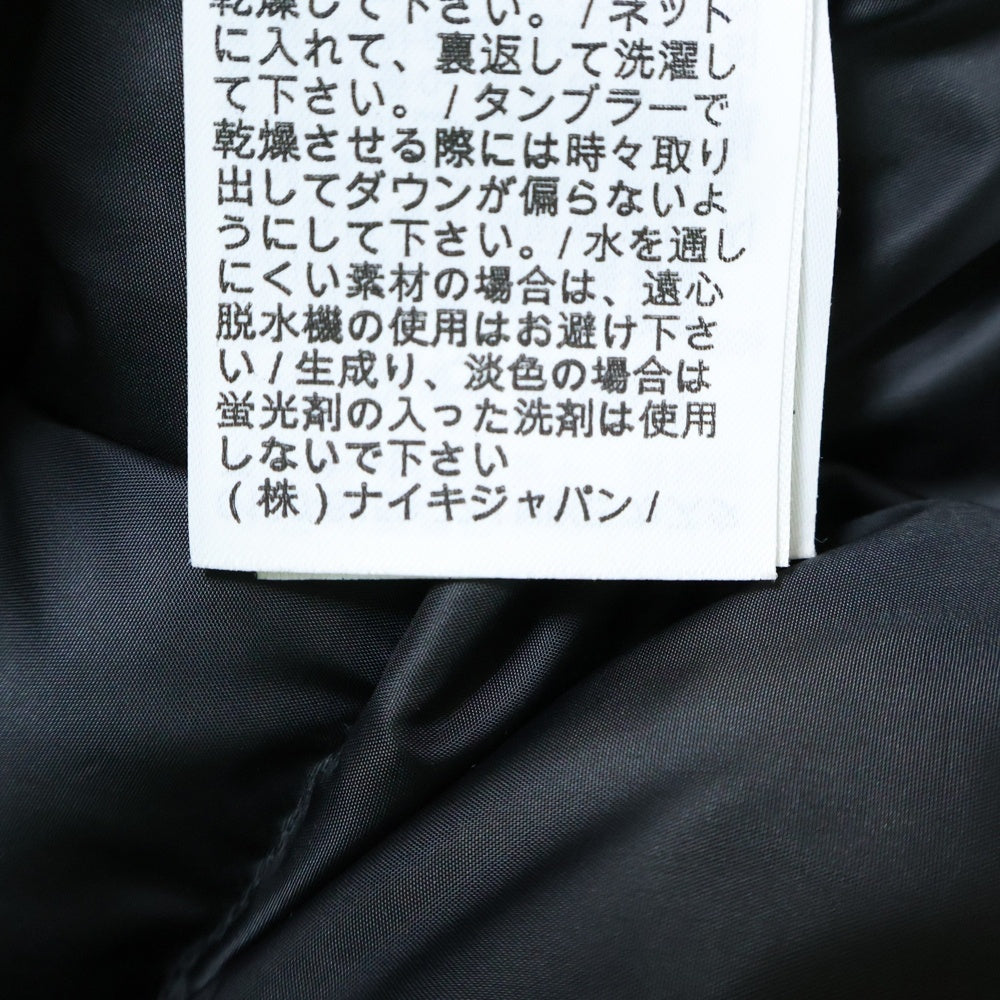 乾燥して下さい。/ネット
に入れて、裏返して洗濯し
て下さい。/タンブラーで
乾燥させる際には時々取り
出してダウンが偏らないよ
うにして下さい。/水を通し
にくい素材の場合は、遠心
脱水機の使用はお避け下さ
い/生成り、淡色の場合は
蛍光剤の入った洗剤は使用
しないで下さい
(株)ナイキジャパン/